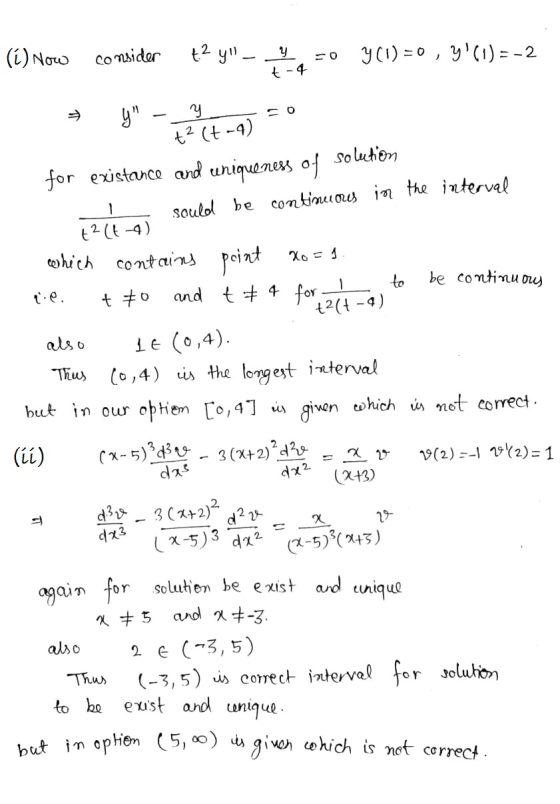 (i) Now consider t² y'' - y/(t-4) = 0 y(1) = 0, y'(1) = -2
⇒ y'' - y/(t²(t-4)) = 0
for existance and uniqueness of solution
1/(t²(t-4)) sould be continuous in the interval
which contains point x₀ = 1.
i.e. t ≠ 0 and t ≠ 4 for 1/(t²(t-4)) to be continuous
also 1 ∈ (0,4).
Thus (0,4) is the longest interval
but in our option [0,4] is given which is not correct.
(ii) (x-5)³ d³v/dx³ - 3(x+2)² d²v/dx² = x/(x+3) v v(2) = -1 v'(2) = 1
⇒ d³v/dx³ - 3(x+2)²/(x-5)³ d²v/dx² = x/((x-5)³(x+3)) v
again for solution be exist and unique
x ≠ 5 and x ≠ -3.
also 2 ∈ (-3,5)
Thus (-3,5) is correct interval for solution
to be exist and unique.
but in option (5,∞) is given which is not correct.